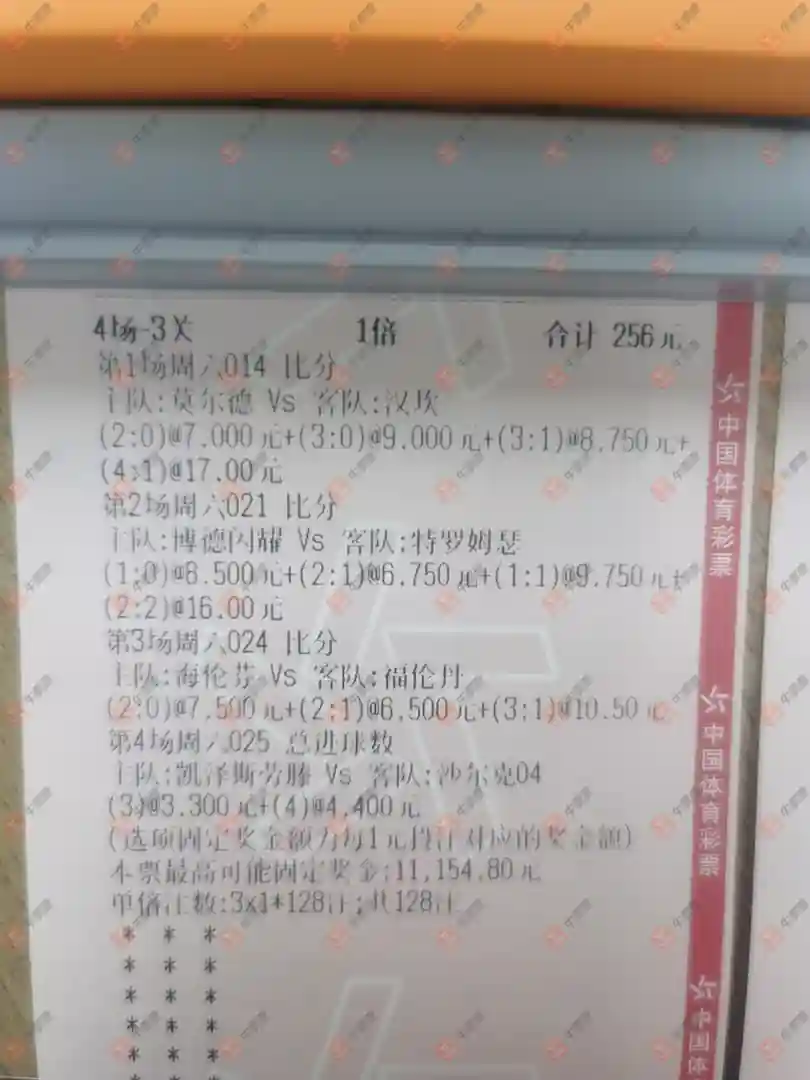 4场-3关 1倍 合计 256元
第1场周六014 比分
主队:莫尔德 Vs 客队:汉坎
(2:0)@7.000元+(3:0)@9.000元+(3:1)@8.750元+
(4:1)@17.00元
第2场周六021 比分
主队:博德闪耀 Vs 客队:特罗姆瑟
(1:0)@8.500元+(2:1)@6.750元+(1:1)@9.750元+
(2:2)@16.00元
第3场周六024 比分
主队:海伦芬 Vs 客队:福伦丹
(2:0)@7.500元+(2:1)@6.500元+(3:1)@10.50元
第4场周六025 总进球数
主队:凯泽斯劳滕 Vs 客队:沙尔克04
(3)@3.300元+(4)@4.400元
(选项固定奖金额为每1元投注对应的奖金额)
本票最高可能固定奖金:11,154.80元
单倍注数:3x1*128注;共128注
* * *
* * *
* * *
* * *
* * *
* * *
中国体育彩票
中国体育彩票
中国体